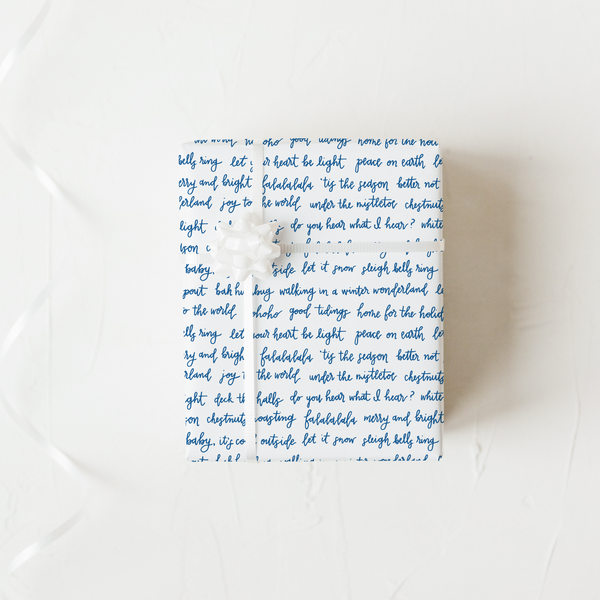 good tidings home for the
bells ring let your heart be light peace on earth
and bright falalalala 'tis the season better not
joy to the world under the mistletoe chestnuts
light do you hear what I hear? white
baby, outside let it snow sleigh bells ring
pout bah humbug walking in a winter wonderland
the world hohoho good tidings home for the holid
lls ring let your heart be light peace on earth
ry and bright falalalala 'tis the season better not
rland joy to the world under the mistletoe chestnuts
ght deck the halls do you hear what I hear? white
son chestnuts roasting falalalala merry and bright
baby, it's cold outside let it snow sleigh bells ring